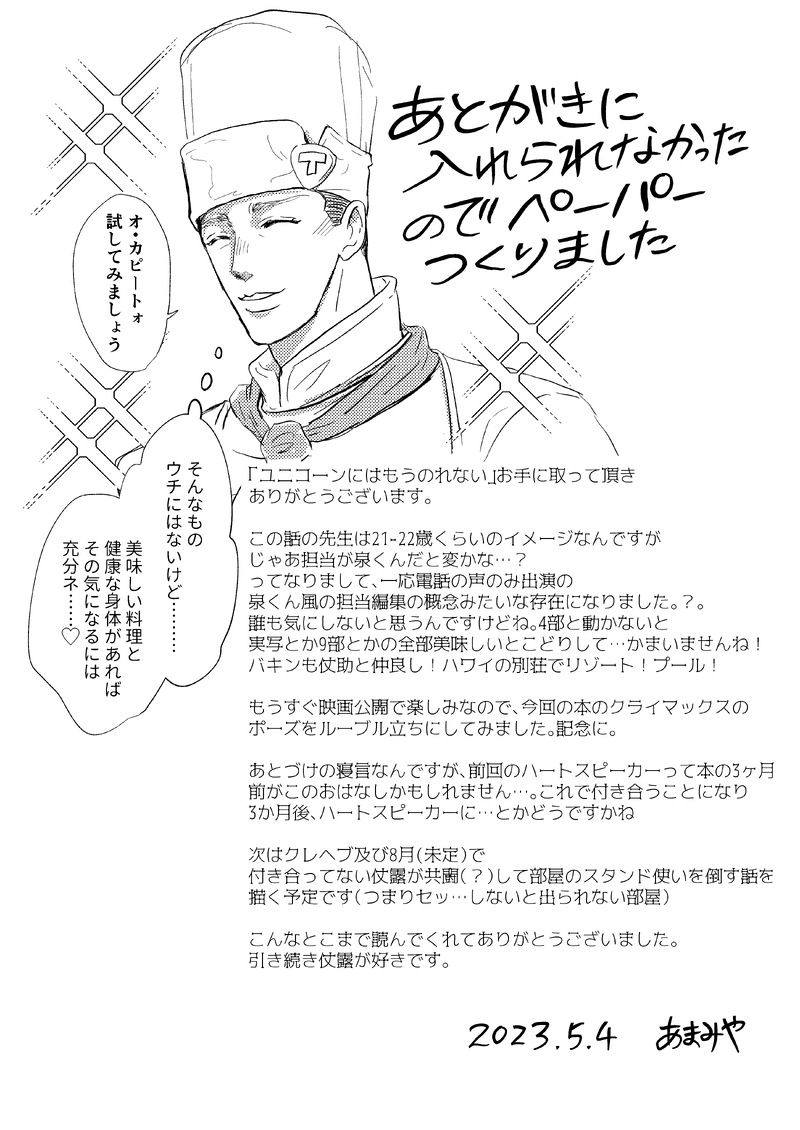 あとがきに
入れられなかった
のでペーパー
つくりました
オ・カピートォ
試してみましょう
そんなもの
ウチにはないけど………
美味しい料理と
健康な身体があれば
その気になるには
充分ネ……♡
「ユニコーンにはもうのれない」お手に取って頂き
ありがとうございます。
この話の先生は21-22歳くらいのイメージなんですが
じゃあ担当が泉くんだと変かな…？
ってなりまして、一応電話の声のみ出演の
泉くん風の担当編集の概念みたいな存在になりました。？。
誰も気にしないと思うんですけどね。4部と動かないと
実写とか9部とかの全部美味しいとこどりして…かまいませんね！
バキンも仗助と仲良し！ハワイの別荘でリゾート！プール！
もうすぐ映画公開で楽しみなので、今回の本のクライマックスの
ポーズをルーブル立ちにしてみました。記念に。
あとづけの寝言なんですが、前回のハートスピーカーって本の3ヶ月
前がこのおはなしかもしれません…。これで付き合うことになり
3か月後、ハートスピーカーに…とかどうですかね
次はクレヘブ及び8月（未定）で
付き合ってない仗露が共闘（？）して部屋のスタンド使いを倒す話を
描く予定です（つまりセッ…しないと出られない部屋）
こんなとこまで読んでくれてありがとうございました。
引き続き仗露が好きです。
2023.5.4 あまみや